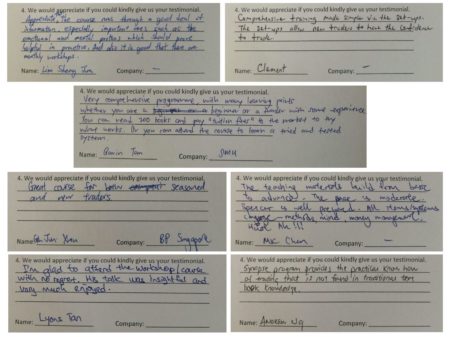 4. We would appreciate if you could kindly give us your testimonial.
Appreciate. The course runs through a good deal of
information, especially important ones such as the
emotional and mental portions which should prove
helpful in practice. And also it is good that there are
monthly workshops.
Name: Lim Sheng Jun Company: -
4. We would appreciate if you could kindly give us your testimonial.
Comprehensive training made simple via the set-ups.
The set-ups allow new traders to have the confidence
to trade.
Name: Clement Company: -
4. We would appreciate if you could kindly give us your testimonial.
Very comprehensive programme, with many learning points
whether you are a beginner or a trader with some experience.
You can read 300 books and pay "tuition fees" to the market to try
what works. Or you can attend the course to learn a tried and tested
system.
Name: Gavin Tan Company: SMU
4. We would appreciate if you could kindly give us your testimonial.
Great course for both seasoned
and new traders.
Name: Jun Company: BP Singapore
4. We would appreciate if you could kindly give us your testimonial.
The teaching materials build from basic
to advanced. The pace is moderate.
Spencer is well prepared. All
methods, mind, money management.
Name: Mac Chen Company: -
4. We would appreciate if you could kindly give us your testimonial.
I'm glad to attend the workshop/course
with no regret. His talk was insightful and
very much enjoyed.
Name: Lyons Tan Company:
4. We would appreciate if you could kindly give us your testimonial.
Synapse program provides the practical know how
of trading that is not found in traditional text
book knowledge.
Name: Andrew Ng Company: